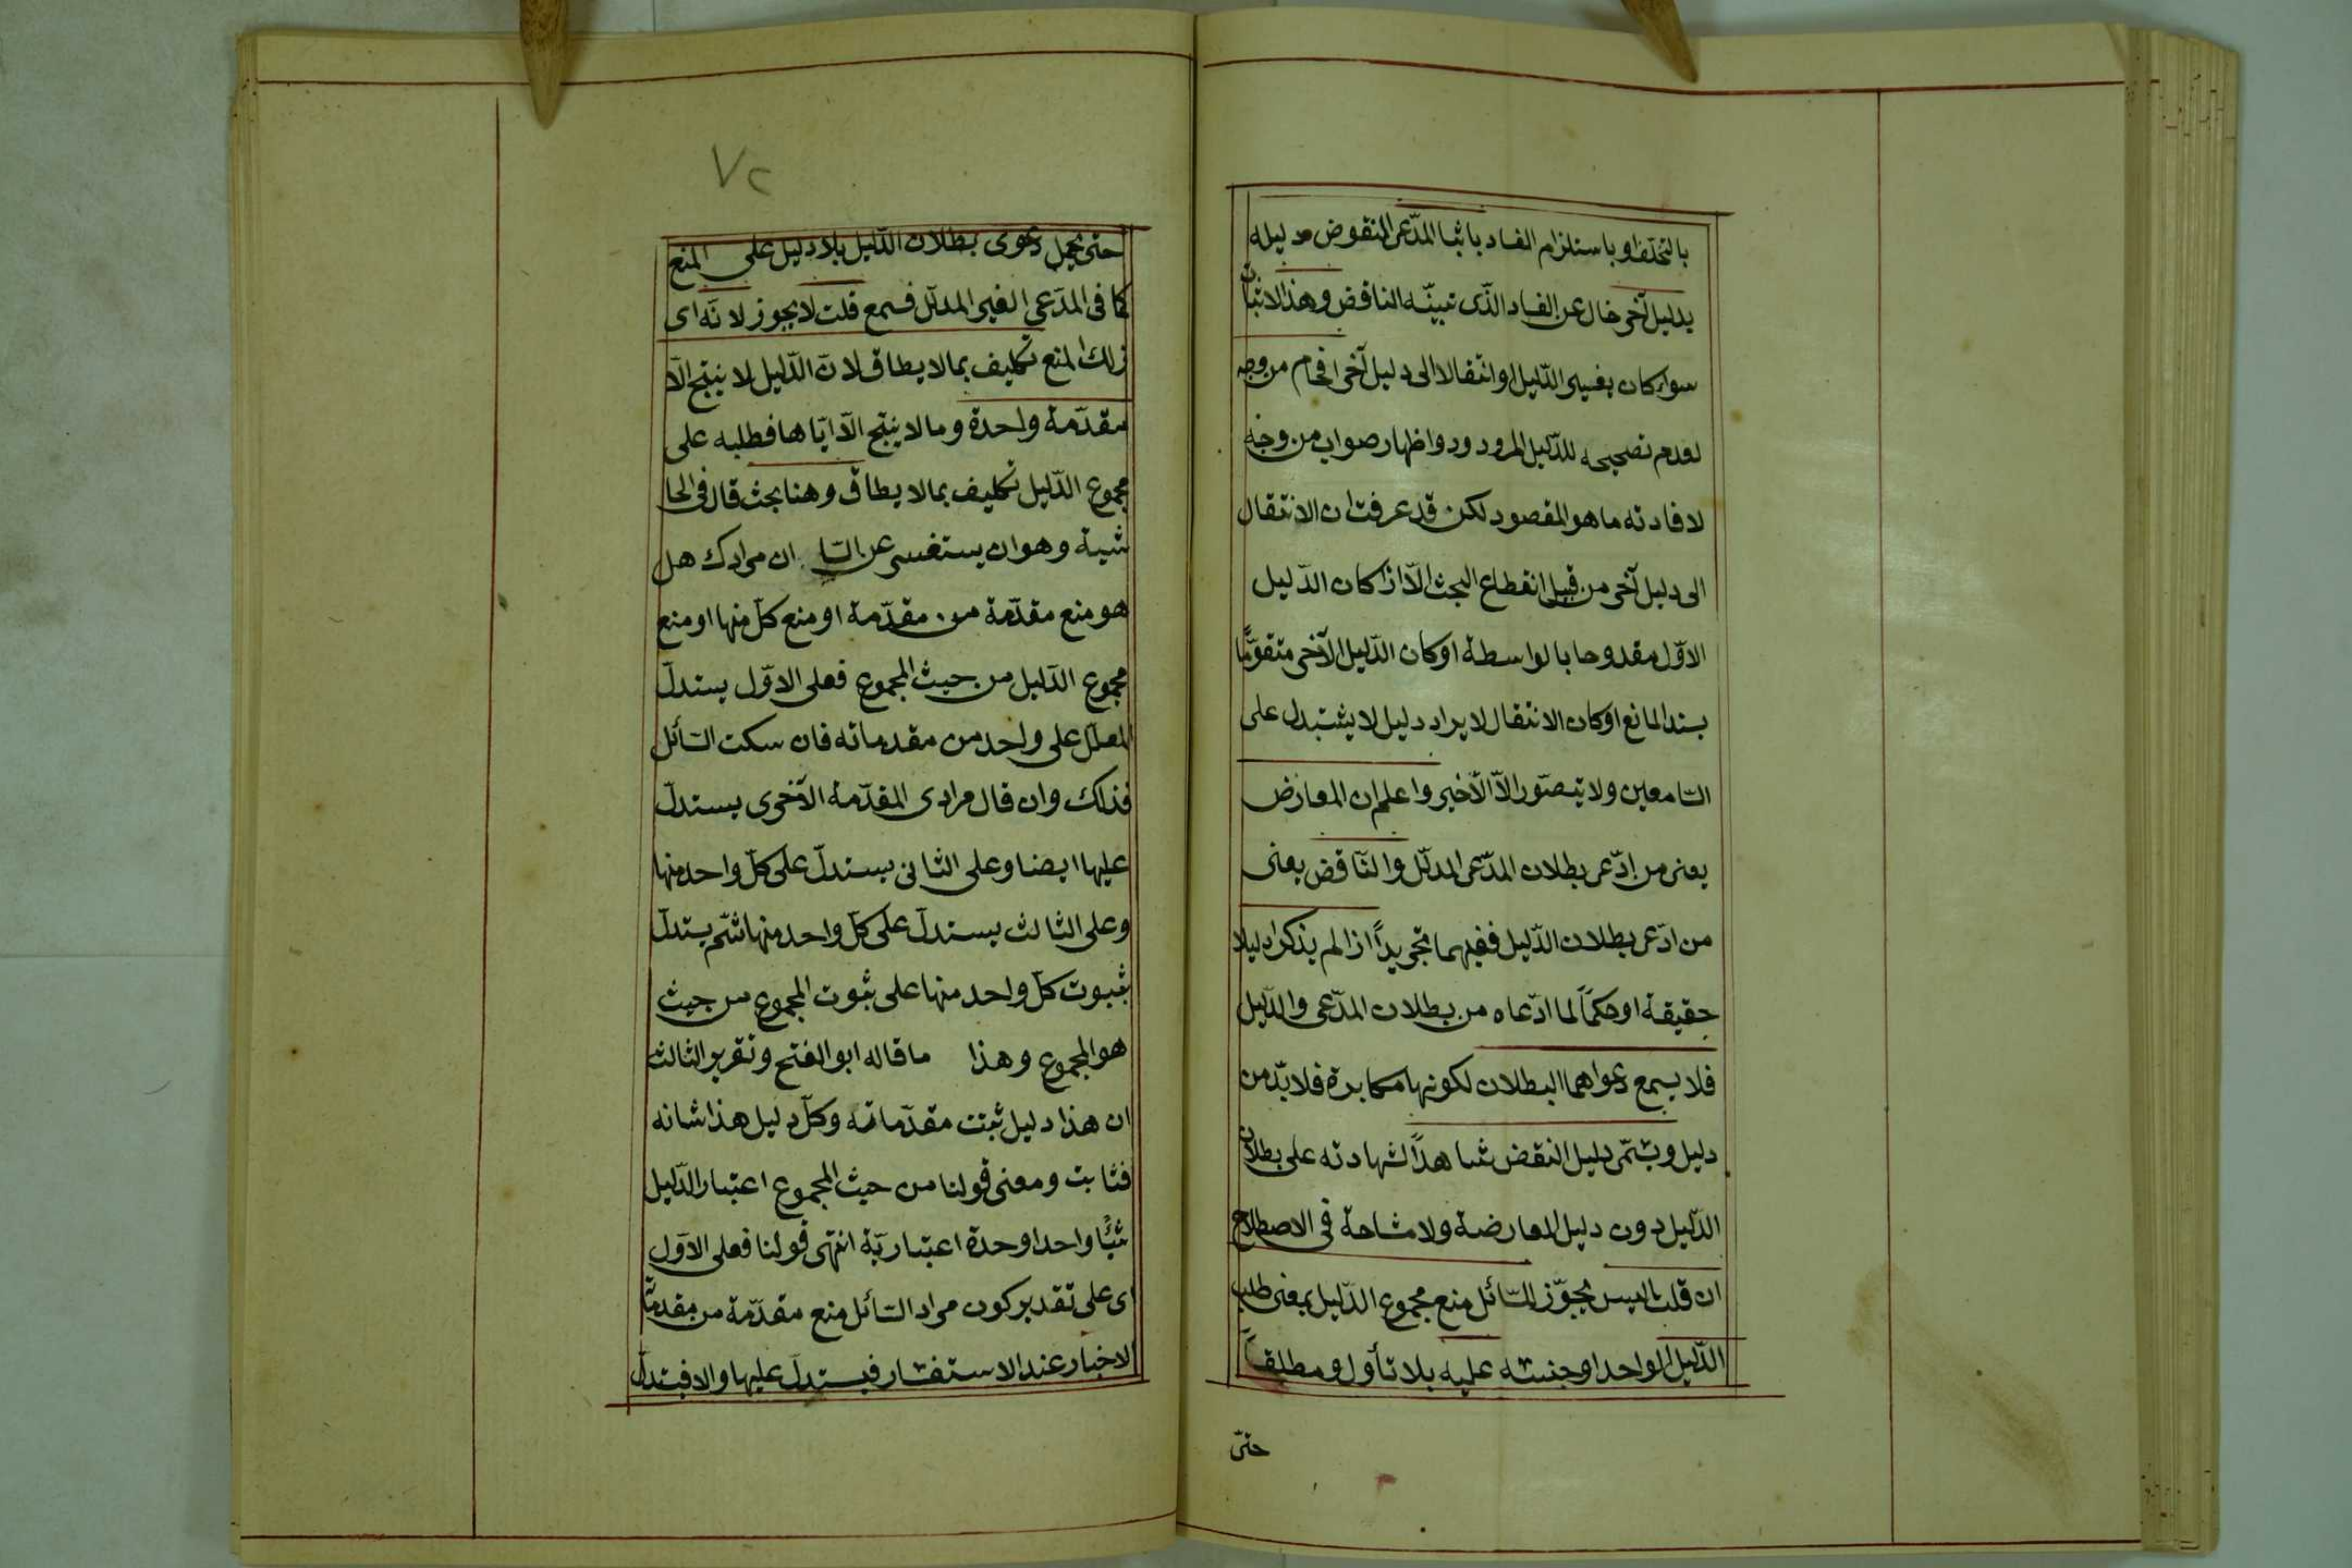 بالتخلف او باستلزام الفساد باثبا المدّعى المنقوض دليله
بدليل آخر خال عن الفساد الذّى تبينّه الناقض وهذا الاثبات
سواء كان بغيير الدّليل او انتقالا الى دليل آخر افحام من وجه
لعدم تصحيحه للدّليل المردود واظهار صواب من وجه
لافادته ما هو المقصود لكن قد عرفت ان الانتقال
الى دليل آخر من قبيل انقطاع البحث الّا اذا كان الدّليل
الاوّل مقدوحا بالواسطة او كان الدّليل الآخر متقوّمًا
بسند المانع او كان الانتقال لايراد دليل لا يشتبه على
السّامعين ولا يتصّور الّا الأخير واعلم ان المعارض
يعنى من ادّعى بطلان المدّعى المدلّل والنّاقض يعنى
من ادّعى بطلان الدّليل ففيهما تجريداً اذا لم يذكرا دليلا
حقيقة او حكماً لما ادّعاه من بطلان المدّعى والدّليل
فلا يسمع دعواهما البطلان لكونها مكابرة فلا بدّ من
دليل ويسمّى دليل النقض شاهداً لشهادته على بطلان
الدّليل دون دليل المعارضة ولا مشاحة فى الاصطلاح
ان قلت اليس يجوّز للسّائل منع مجموع الدّليل بمعنى طلب
الدّليل الواحد او جنسه عليه بلا تأول ومطلقاً
حتىّ
٧٢
حتى يحمل دعوى بطلان الدّليل بلا دليل على المنع
كما فى المدّعى الغير المدلّل فسمع قلت لا يجوز لانّه اى
ذلك المنع تكليف بما لا يطاق لانّ الدّليل لا ينتج الّا
مقدّمة واحدة وما لا ينتج الّا ايّاها فطلبه على
مجموع الدّليل تكليف بما لا يطاق وهنا بحث قال فى الحا
شية وهو ان يستفسر عن السّا ان مرادك هل
هو منع مقدّمة من مقدّمة او منع كلّ منها او منع
مجموع الدّليل من حيث المجموع فعلى الاوّل يستدلّ
المعلّل على واحد من مقدماته فان سكت السّائل
فذلك وان قال مرادى المقدّمة الآخرى يستدلّ
عليها ايضا وعلى الثانى يستدلّ على كلّ واحد منها
وعلى الثالث يستدلّ على كلّ واحد منها ثمّ يستدلّ
بثبوت كلّ واحد منها على ثبوت المجموع من حيث
هو المجموع وهذا ما قاله ابو الفتح وتقرير الثالث
ان هذا دليل ثبتت مقدّماته وكلّ دليل هذا شانه
فثابت ومعنى قولنا من حيث المجموع اعتبار الدّليل
شيئًا واحدا وحدة اعتباريّة انتهى قولنا فعلى الاوّل
اى على تقدير كون مراد السّائل منع مقدّمة من مقدماته
الاخبار عند الاستفسار فيستدلّ عليها والا فيستدلّ